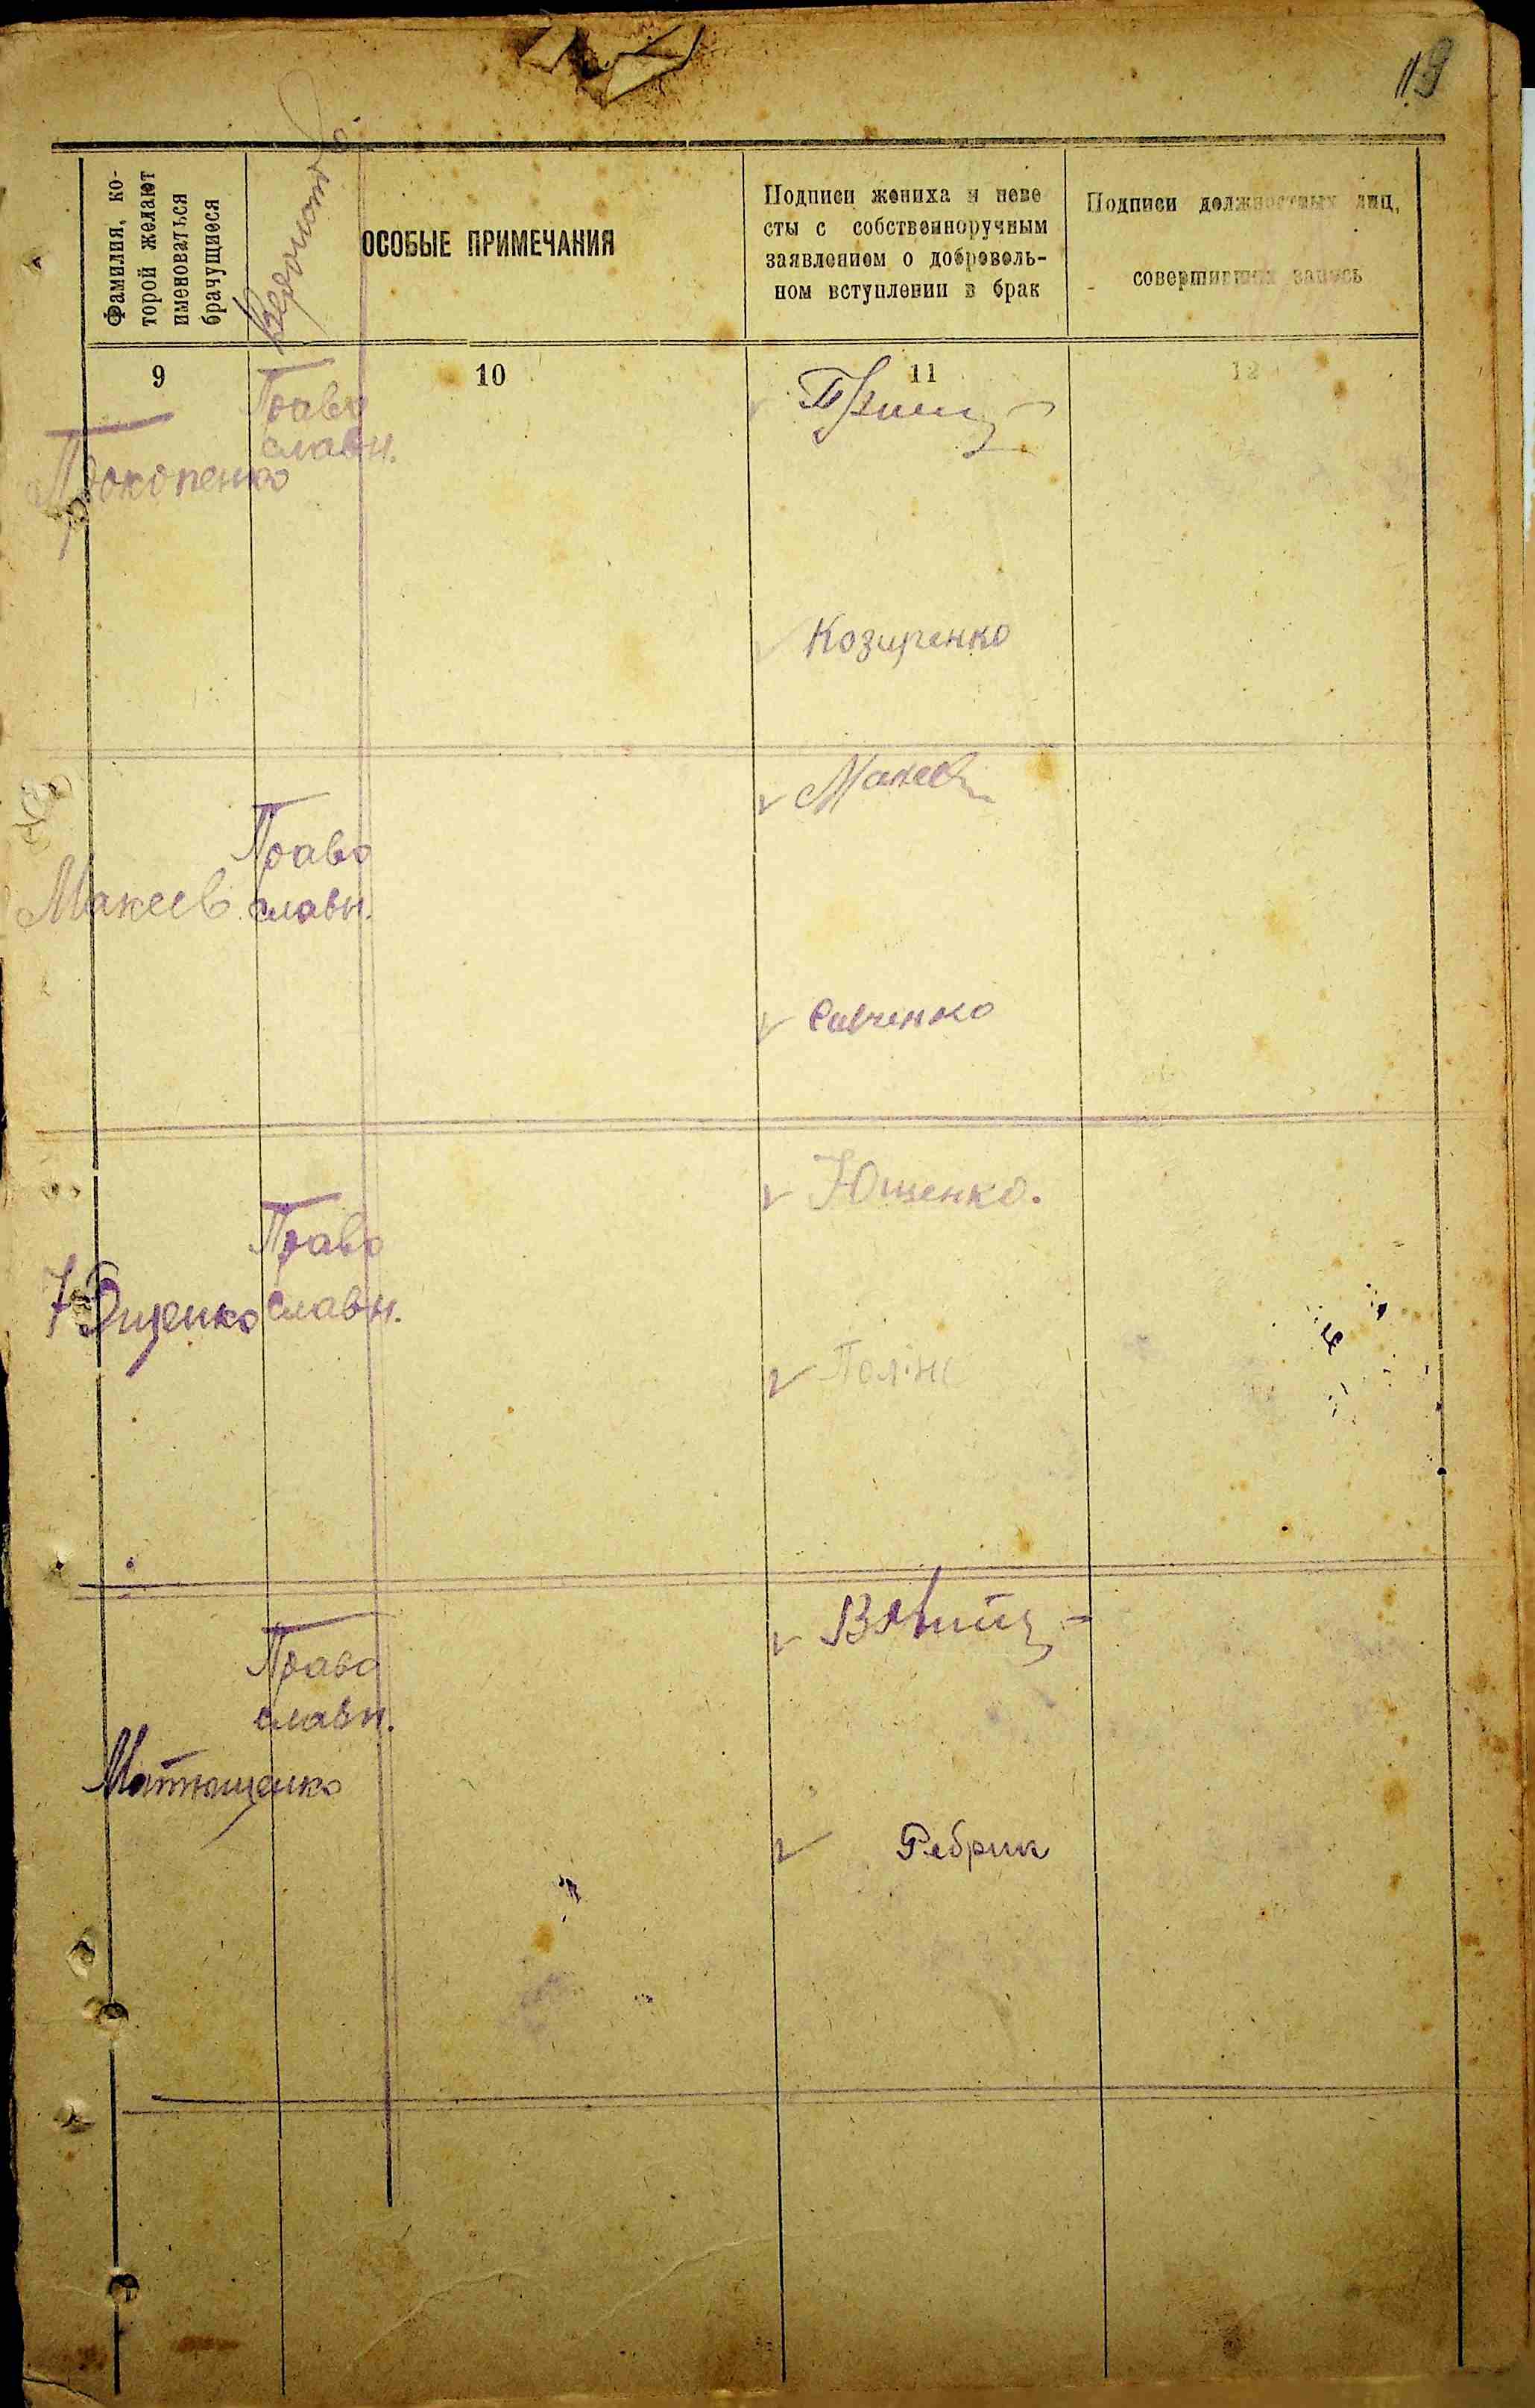 119
Фамилия, ко-
торой желают
именоваться
брачущиеся
ОСОБЫЕ ПРИМЕЧАНИЯ
Подписи жениха и неве
сты с собственноручным
заявлением о доброволь-
ном вступлении в брак
Подписи должностных лиц,
совершивших запись
9
10
11
12
Право
славн.
Прокопенко
Козиренко
Макеев
Право
Макеев славн.
Савченко
Ющенко.
Право
Ющенко славн.
Право
славн.
Матющенко
Ребрик